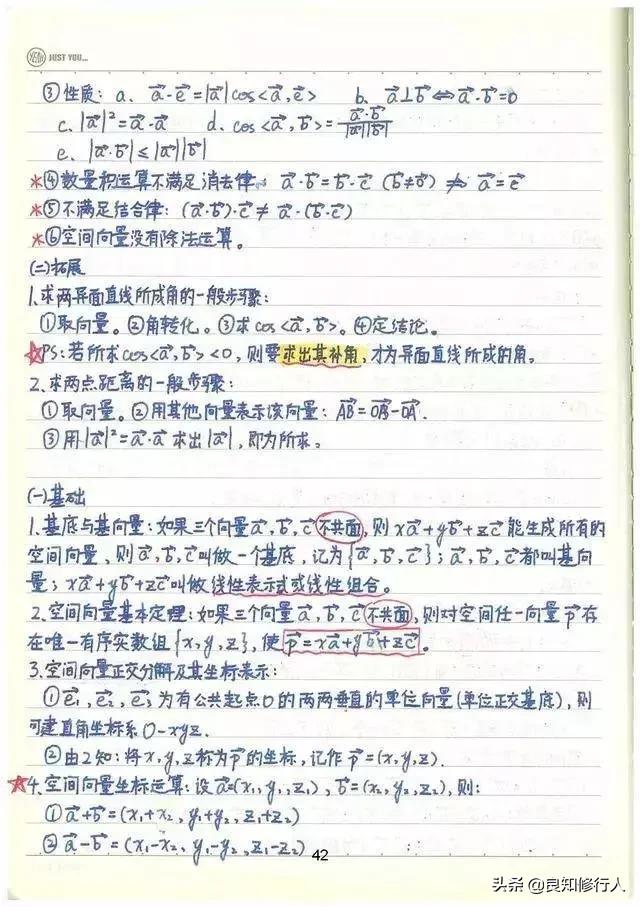 YEAH JUST YOU...
③性质: a. a⃗·e⃗=|a⃗|cos<a⃗,e⃗> b. a⃗⊥b⃗⇔a⃗·b⃗=0
c. |a⃗|²=a⃗·a⃗ d. cos<a⃗,b⃗>=a⃗·b⃗/|a⃗||b⃗|
e. |a⃗·b⃗|≤|a⃗||b⃗|
*④数量积运算不满足消去律. a⃗·b⃗=b⃗·c⃗ (b⃗≠0⃗) ⇏ a⃗=c⃗
*⑤不满足结合律: (a⃗·b⃗)·c⃗≠a⃗·(b⃗·c⃗)
*⑥空间向量没有除法运算。
(二)拓展
1.求两异面直线所成角的一般步骤:
①取向量。②角转化。③求cos<a⃗,b⃗>。④定结论。
☆PS:若所求cos<a⃗,b⃗><0,则要求出其补角,才为异面直线所成的角。
2.求两点距离的一般步骤:
①取向量。②用其他向量表示该向量: AB⃗=OB⃗-OA⃗.
③用|a⃗|²=a⃗·a⃗求出|a⃗|,即为所求。
(一)基础
1.基底与基向量:如果三个向量a⃗,b⃗,c⃗不共面,则xa⃗+yb⃗+zc⃗能生成所有的
空间向量,则a⃗,b⃗,c⃗叫做一个基底,记为{a⃗,b⃗,c⃗};a⃗,b⃗,c⃗都叫基向
量;xa⃗+yb⃗+zc⃗叫做线性表示式或线性组合。
2.空间向量基本定理:如果三个向量a⃗,b⃗,c⃗不共面,则对空间任一向量p⃗存
在唯一有序实数组{x,y,z},使p⃗=xa⃗+yb⃗+zc⃗。
3.空间向量正交分解及其坐标表示:
①e⃗₁,e⃗₂,e⃗₃为有公共起点O的两两垂直的单位向量(单位正交基底),则
可建直角坐标系O-xyz.
②由2知:将x,y,z称为p⃗的坐标,记作p⃗=(x,y,z).
☆4.空间向量坐标运算:设a⃗=(x₁,y₁,z₁),b⃗=(x₂,y₂,z₂),则:
①a⃗+b⃗=(x₁+x₂,y₁+y₂,z₁+z₂)
②a⃗-b⃗=(x₁-x₂,y₁-y₂,z₁-z₂)
42
头条 @良知修行人